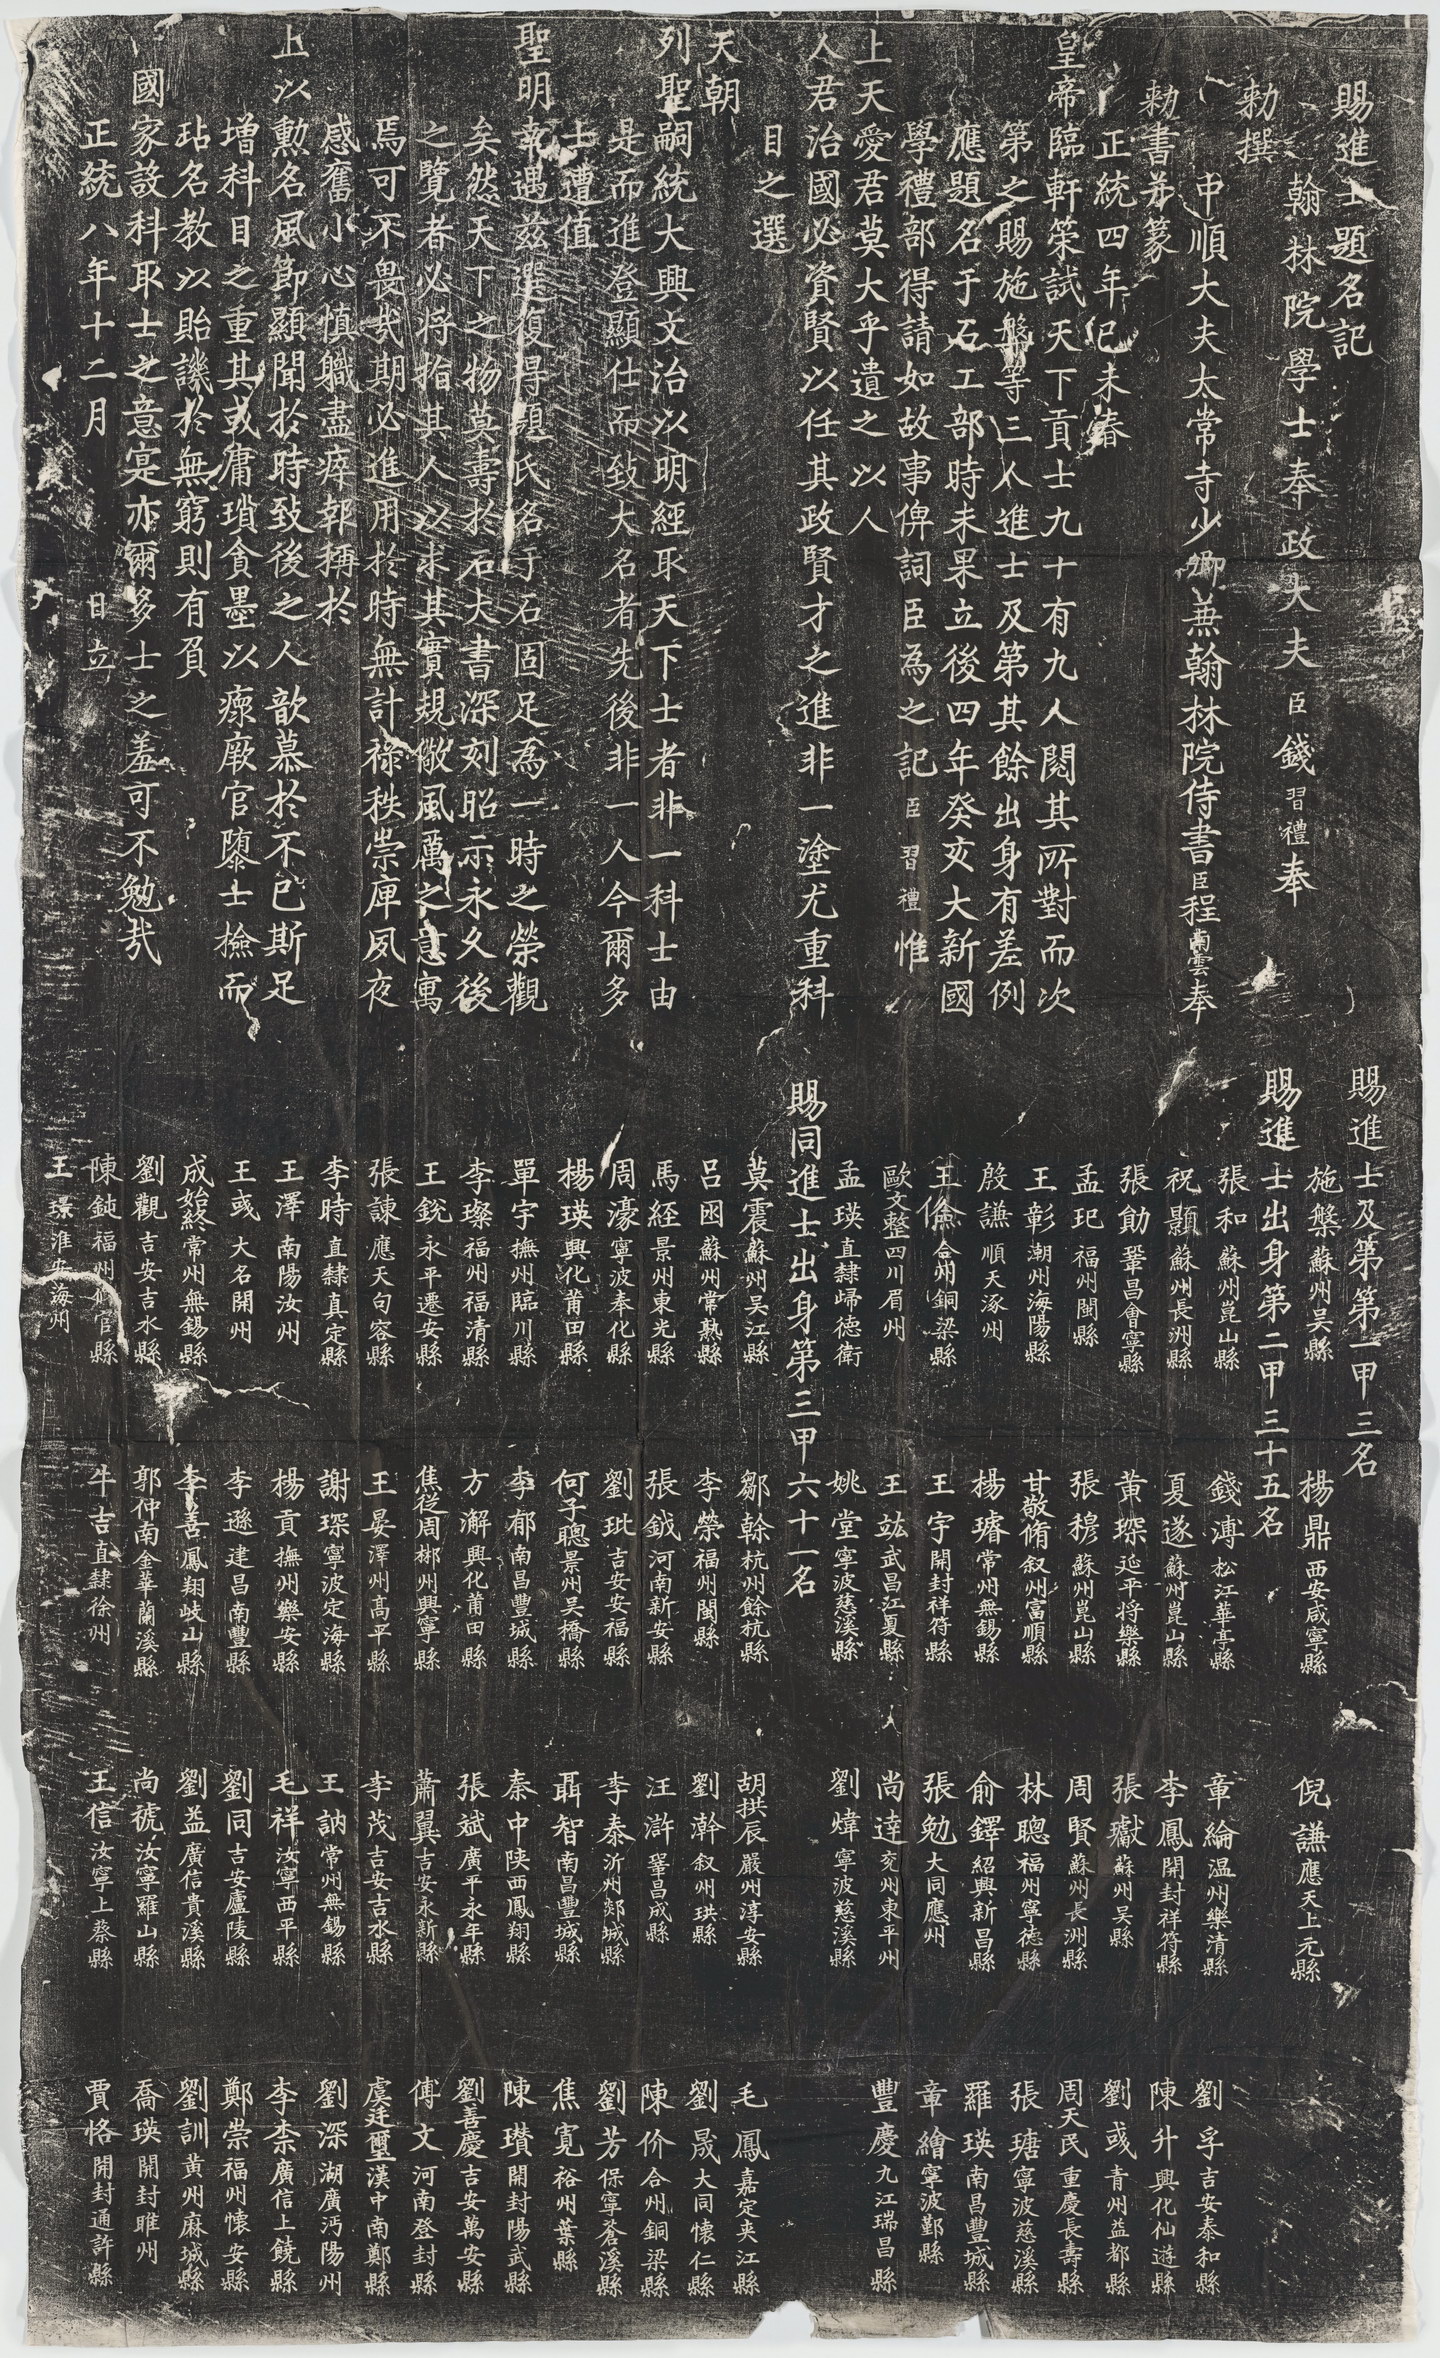 賜進士題名記
翰林院學士奉政大夫臣錢習禮奉
勑撰
中順大夫太常寺少卿兼翰林院侍書臣程南雲奉
勑書并篆
正統四年己未春
皇帝臨軒策試天下貢士九十有九人閱其所對而次
第之賜施槃等三人進士及第其餘出身有差例
應題名于石工部時未果立後四年癸亥大新國
學禮部得請如故事俾詞臣為之記臣習禮惟
上天愛君莫大乎遺之以人
人君治國必資賢以任其政賢才之進非一塗尤重科
目之選
天朝
列聖嗣統大興文治以明經取天下士者非一科士由
是而進登顯仕而致大名者先後非一人今爾多
士遭值
聖明幸遇茲選復得題氏名于石固足為一時之榮觀
矣然天下之物莫壽於石大書深刻昭示永久後
之覽者必將指其人以求其實規儆風厲之意寓
焉可不畏哉期必進用於時無計祿秩崇庳夙夜
感奮小心慎職盡瘁報稱於
上以勳名風節顯聞於時致後之人歆慕於不已斯足
增科目之重其或庸瑣貪墨以瘝厥官隳士撿而
玷名教以貽譏於無窮則有負
國家設科取士之意寔亦爾多士之羞可不勉哉
正統八年十二月 日立
賜進士及第第一甲三名
施槃蘇州吳縣 楊鼎西安咸寧縣 倪謙應天上元縣
賜進士出身第二甲三十五名
張和蘇州崑山縣 錢溥松江華亭縣 章綸温州樂清縣 劉孚吉安泰和縣
祝顥蘇州長洲縣 夏遂蘇州崑山縣 李鳳開封祥符縣 陳升興化仙遊縣
張勛鞏昌會寧縣 黃琛延平將樂縣 張瓛蘇州吳縣 劉彧青州益都縣
孟玘福州閩縣 張穆蘇州崑山縣 周賢蘇州長洲縣 周天民重慶長壽縣
王彰潮州海陽縣 甘敬脩叙州富順縣 林聰福州寧德縣 張瑭寧波慈溪縣
殷謙順天涿州 楊璿常州無錫縣 俞鐸紹興新昌縣 羅瑛南昌豐城縣
王儉合州銅梁縣 王宇開封祥符縣 張勉大同應州 章繪寧波鄞縣
歐文整四川眉州 王竑武昌江夏縣 尚達兗州東平州 豐慶九江瑞昌縣
孟瑛直隸歸德衛 姚堂寧波慈溪縣 劉煒寧波慈溪縣
賜同進士出身第三甲六十一名
莫震蘇州吳江縣 鄒榦杭州餘杭縣 胡拱辰嚴州淳安縣 毛鳳嘉定夾江縣
呂囦蘇州常熟縣 李榮福州閩縣 劉瀚叙州珙縣 劉晟大同懷仁縣
馬經景州東光縣 張鉞河南新安縣 汪滸鞏昌成縣 陳价合州銅梁縣
周濠寧波奉化縣 劉玭吉安安福縣 李泰沂州郯城縣 劉芳保寧蒼溪縣
楊瑛興化莆田縣 何子聰景州吳橋縣 聶智南昌豐城縣 焦寬裕州葉縣
單宇撫州臨川縣 李郁南昌豐城縣 秦中陝西鳳翔縣 陳瓚開封陽武縣
李璨福州福清縣 方澥興化莆田縣 張斌廣平永年縣 劉善慶吉安萬安縣
王銳永平遷安縣 焦從周郴州興寧縣 蕭翼吉安永新縣 傅文河南登封縣
張諫應天句容縣 王晏澤州高平縣 李茂吉安吉水縣 虞廷璽漢中南鄭縣
李時直隸真定縣 謝琛寧波定海縣 王訥常州無錫縣 劉深湖廣沔陽州
王澤南陽汝州 楊貢撫州樂安縣 毛祥汝寧西平縣 李柰廣信上饒縣
王彧大名開州 李遜建昌南豐縣 劉同吉安廬陵縣 鄭崇福州懷安縣
成始終常州無錫縣 李善鳳翔岐山縣 劉益廣信貴溪縣 劉訓黃州麻城縣
劉觀吉安吉水縣 郭仲南金華蘭溪縣 尚褫汝寧羅山縣 喬瑛開封睢州
陳鈍福州侯官縣 牛吉直隸徐州 王信汝寧上蔡縣 賈恪開封通許縣
王璟淮安海州